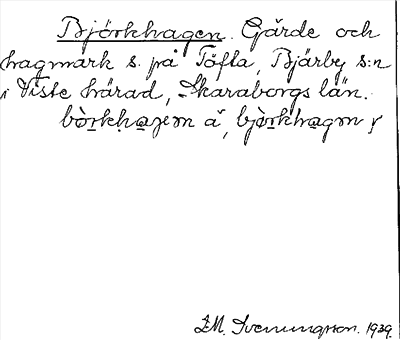 Björkhagen. Gärde och
hagmark s. på Töfta, Bjärby s:n
i Viste härad, Skaraborgs län.
bò̱rkha̱gem ä, bjò̱rkha̱gm y
I.M. Svenungsson. 1939.